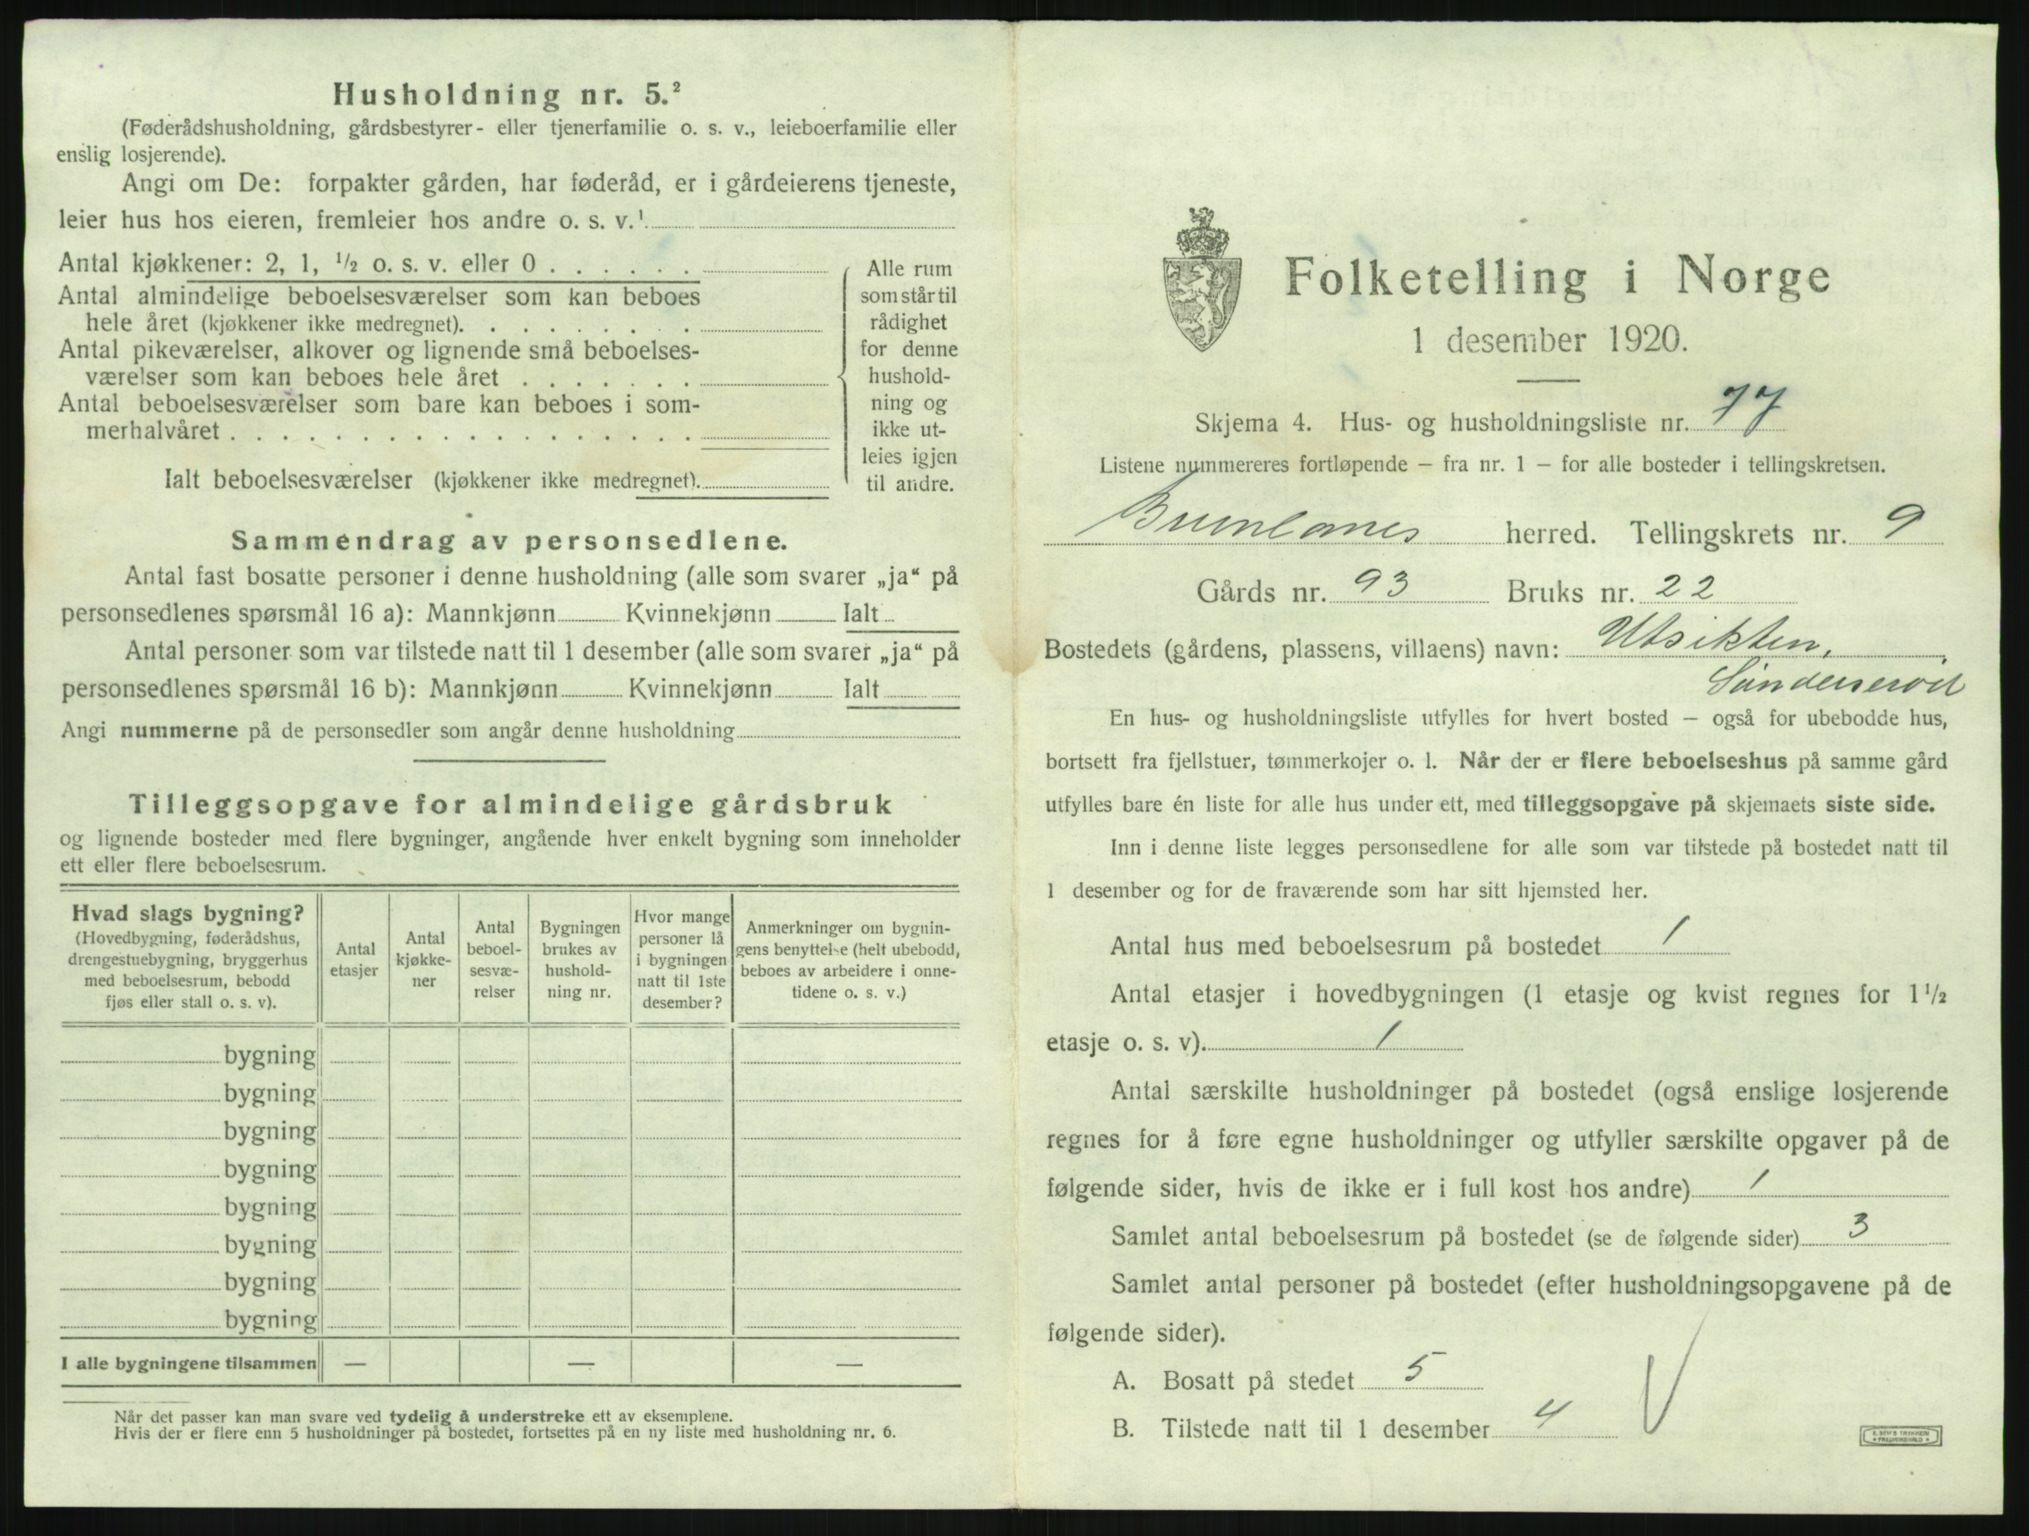 Husholdning nr. 5.²
(Føderådshusholdning, gårdsbestyrer- eller tjenerfamilie o. s. v., leieboerfamilie eller
enslig losjerende).
Angi om De: forpakter gården, har føderåd, er i gårdeierens tjeneste,
leier hus hos eieren, fremleier hos andre o. s. v.¹
Antal kjøkkener: 2, 1, ½ o. s. v. eller 0 . . . . . .
Antal almindelige beboelsesværelser som kan beboes
hele året (kjøkkener ikke medregnet). . . . . . . . .
Antal pikeværelser, alkover og lignende små beboelses-
værelser som kan beboes hele året . . . . . . .
Antal beboelsesværelser som bare kan beboes i som-
merhalvåret . . . . . . . . . . . . . . . . . .
Ialt beboelsesværelser (kjøkkener ikke medregnet).
Alle rum
som står til
rådighet
for denne
hushold-
ning og
ikke ut-
leies igjen
til andre.
Sammendrag av personsedlene.
Antal fast bosatte personer i denne husholdning (alle som svarer „ja“ på
personsedlenes spørsmål 16 a): Mannkjønn Kvinnekjønn Ialt
Antal personer som var tilstede natt til 1 desember (alle som svarer „ja“ på
personsedlenes spørsmål 16 b): Mannkjønn Kvinnekjønn Ialt
Angi nummerne på de personsedler som angår denne husholdning
Tilleggsopgave for almindelige gårdsbruk
og lignende bosteder med flere bygninger, angående hver enkelt bygning som inneholder
ett eller flere beboelsesrum.
Hvad slags bygning?
(Hovedbygning, føderådshus,
drengestuebygning, bryggerhus
med beboelsesrum, bebodd
fjøs eller stall o. s. v).
Antal
etasjer
Antal
kjøkke-
ner
Antal
beboel-
sesvæ-
relser
Bygningen
brukes av
hushold-
ning nr.
Hvor mange
personer lå
i bygningen
natt til 1ste
desember?
Anmerkninger om bygnin-
gens benyttelse (helt ubebodd,
beboes av arbeidere i onne-
tidene o. s. v.)
bygning
bygning
bygning
bygning
bygning
bygning
bygning
bygning
I alle bygningene tilsammen — — —
Når det passer kan man svare ved tydelig å understreke ett av eksemplene.
Hvis der er flere enn 5 husholdninger på bostedet, fortsettes på en ny liste med husholdning nr. 6.
Folketelling i Norge
1 desember 1920.
Skjema 4. Hus- og husholdningsliste nr. 77
Listene nummereres fortløpende – fra nr. 1 – for alle bosteder i tellingskretsen.
Brunlanes herred. Tellingskrets nr. 9
Gårds nr. 93 Bruks nr. 22
Bostedets (gårdens, plassens, villaens) navn: Utsikten,
Sønderserød
En hus- og husholdningsliste utfylles for hvert bosted – også for ubebodde hus,
bortsett fra fjellstuer, tømmerkojer o. l. Når der er flere beboelseshus på samme gård
utfylles bare én liste for alle hus under ett, med tilleggsopgave på skjemaets siste side.
Inn i denne liste legges personsedlene for alle som var tilstede på bostedet natt til
1 desember og for de fraværende som har sitt hjemsted her.
Antal hus med beboelsesrum på bostedet 1
Antal etasjer i hovedbygningen (1 etasje og kvist regnes for 1½
etasje o. s. v). 1
Antal særskilte husholdninger på bostedet (også enslige losjerende
regnes for å føre egne husholdninger og utfyller særskilte opgaver på de
følgende sider, hvis de ikke er i full kost hos andre) 1
Samlet antal beboelsesrum på bostedet (se de følgende sider) 3
Samlet antal personer på bostedet (efter husholdningsopgavene på de
følgende sider).
A. Bosatt på stedet 5
B. Tilstede natt til 1 desember 4